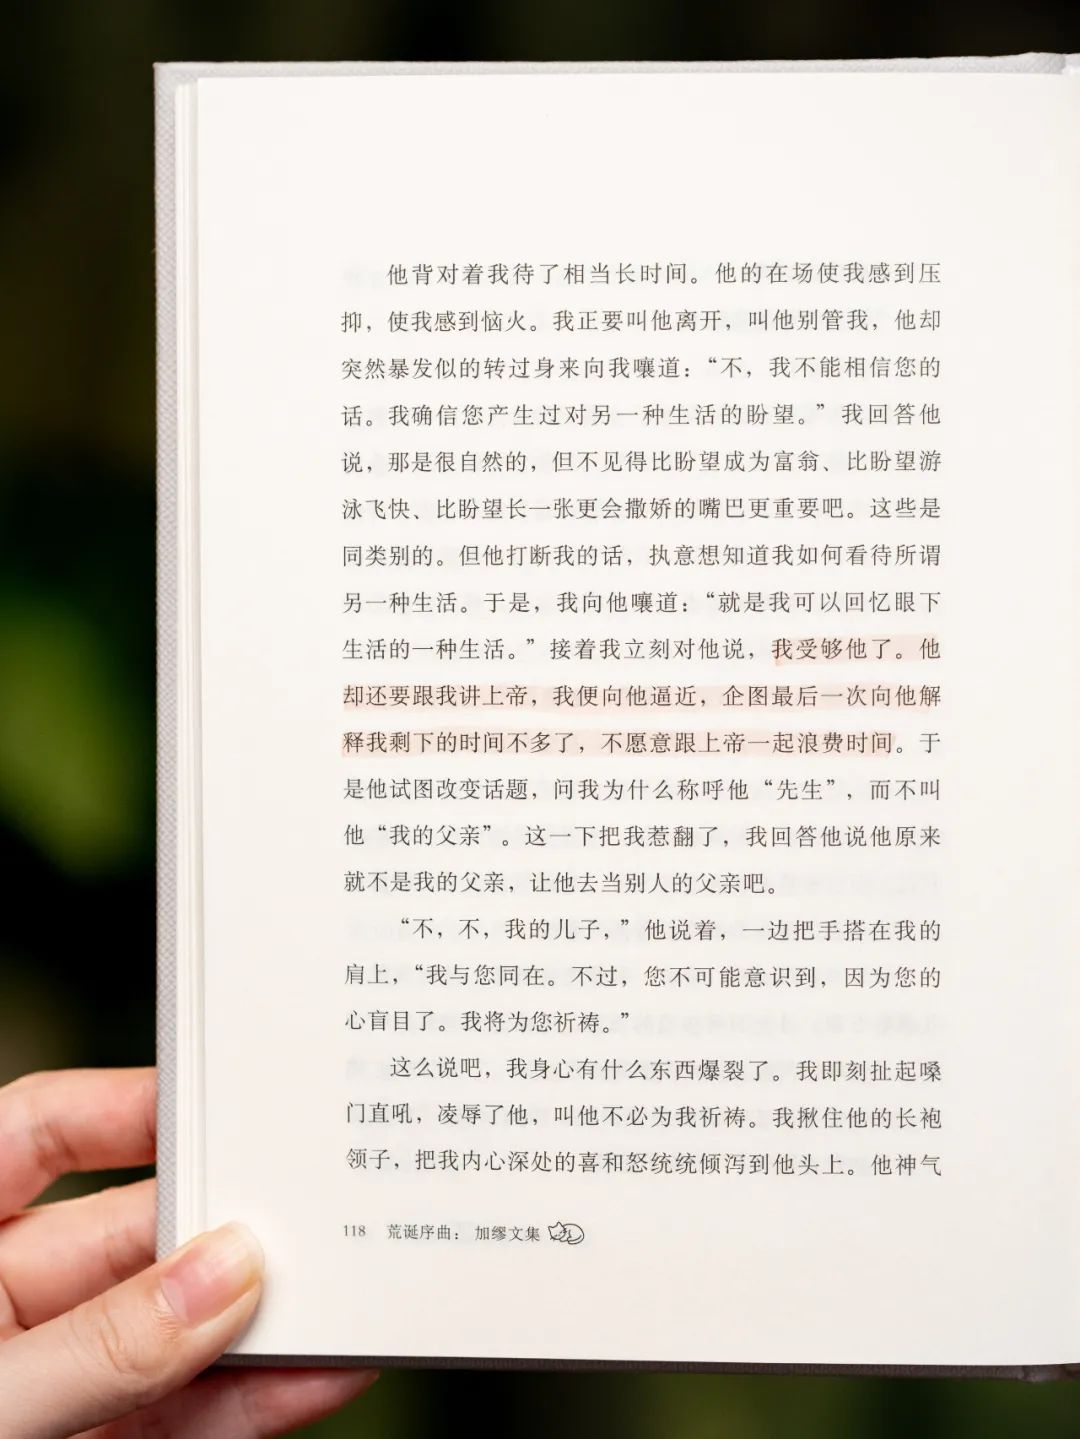 他背对着我待了相当长时间。他的在场使我感到压
抑，使我感到恼火。我正要叫他离开，叫他别管我，他却
突然暴发似的转过身来向我嚷道：“不，我不能相信您的
话。我确信您产生过对另一种生活的盼望。”我回答他
说，那是很自然的，但不见得比盼望成为富翁、比盼望游
泳飞快、比盼望长一张更会撒娇的嘴巴更重要吧。这些是
同类别的。但他打断我的话，执意想知道我如何看待所谓
另一种生活。于是，我向他嚷道：“就是我可以回忆眼下
生活的一种生活。”接着我立刻对他说，我受够他了。他
却还要跟我讲上帝，我便向他逼近，企图最后一次向他解
释我剩下的时间不多了，不愿意跟上帝一起浪费时间。于
是他试图改变话题，问我为什么称呼他“先生”，而不叫
他“我的父亲”。这一下把我惹翻了，我回答他说他原来
就不是我的父亲，让他去当别人的父亲吧。
“不，不，我的儿子，”他说着，一边把手搭在我的
肩上，“我与您同在。不过，您不可能意识到，因为您的
心盲目了。我将为您祈祷。”
这么说吧，我身心有什么东西爆裂了。我即刻扯起嗓
门直吼，凌辱了他，叫他不必为我祈祷。我揪住他的长袍
领子，把我内心深处的喜和怒统统倾泻到他头上。他神气
118 荒诞序曲：加缪文集